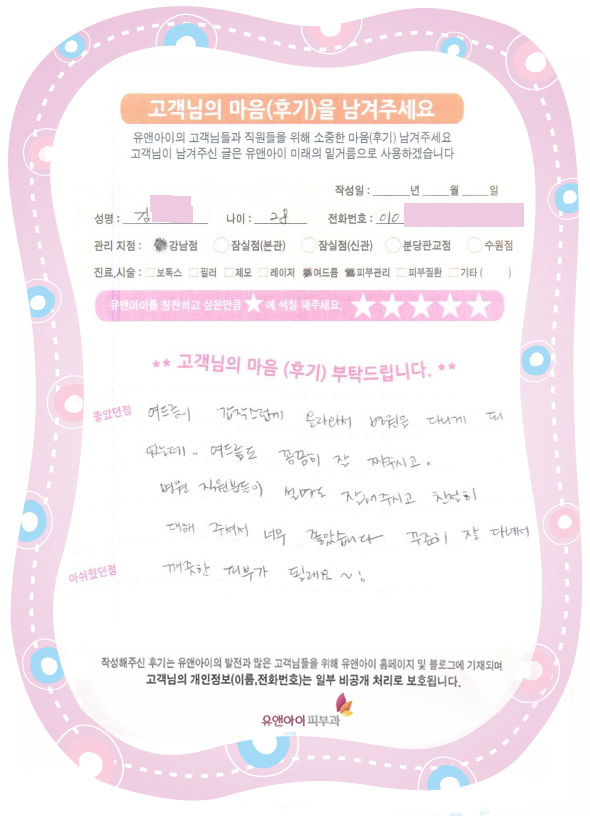 고객님의 마음(후기)을 남겨주세요
유앤아이의 고객님들과 직원들을 위해 소중한 마음(후기) 남겨주세요
고객님이 남겨주신 글은 유앤아이 미래의 밑거름으로 사용하겠습니다
작성일 : 년 월 일
성명 : 김 나이 : 28 전화번호 : 010
관리 지점 : 강남점 잠실점(본관) 잠실점(신관) 분당판교점 수원점
진료,시술 : 보톡스 필러 제모 레이저 여드름 피부관리 피부질환 기타 ( )
유앤아이를 칭찬하고 싶은만큼 ★ 에 색칠 해주세요. ★★★★★
** 고객님의 마음 (후기) 부탁드립니다. **
좋았던점 여드름이 갑작스럽게 올라와서 병원을 다니게 되
었는데.. 여드름도 꼼꼼히 잘 짜주시고.
병원 직원분들이 설명도 잘해주시고 친절히
대해 주셔서 너무 좋았습니다. 꾸준히 잘 다녀서
아쉬웠던점 깨끗한 피부가 될래요~;
작성해주신 후기는 유앤아이의 발전과 많은 고객님들을 위해 유앤아이 홈페이지 및 블로그에 기재되며
고객님의 개인정보(이름,전화번호)는 일부 비공개 처리로 보호됩니다.
유앤아이 피부과